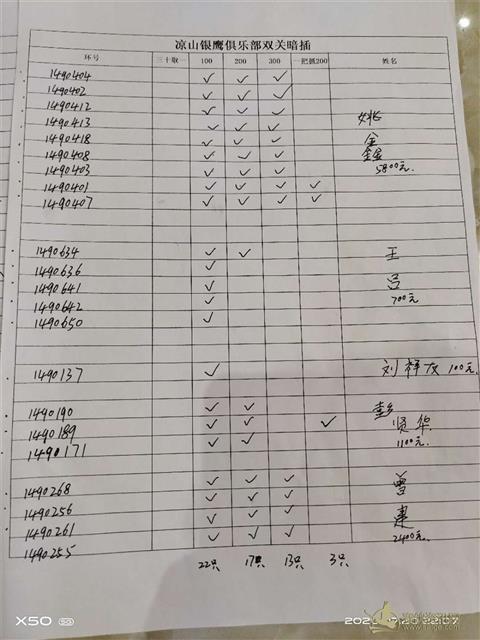 凉山银鹰俱乐部双关暗插
环号 三十取一 100 200 300 一把抓200 姓名
1490404 ✓ ✓ ✓
1490402 ✓ ✓ ✓
1490412 ✓ ✓ ✓
1490413 ✓ ✓ ✓ 姚
1490418 ✓ ✓ ✓ 金
1490408 ✓ ✓ ✓
1490403 ✓ ✓ ✓ 5800元.
1490401 ✓ ✓ ✓ ✓
1490407 ✓ ✓ ✓ ✓
1490634 ✓ ✓ 王
1490636 ✓
1490641 ✓ 吕
1490642 ✓ 700元
1490650 ✓
1490137 ✓ 刘祥友 100元
1490190 ✓ ✓ 彭
1490189 ✓ ✓ ✓ 贤华
1490171 ✓ ✓ 1100元.
1490268 ✓ ✓ ✓ 曾
1490256 ✓ ✓ ✓
1490261 ✓ ✓ ✓ 建
1490255 ✓ ✓ ✓ 2400元.
22只 17只 13只 3只
X50 5G